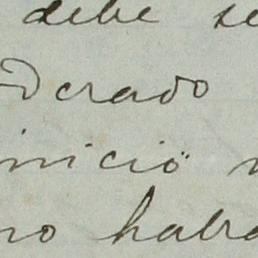 debe se
derado
inició
no habr